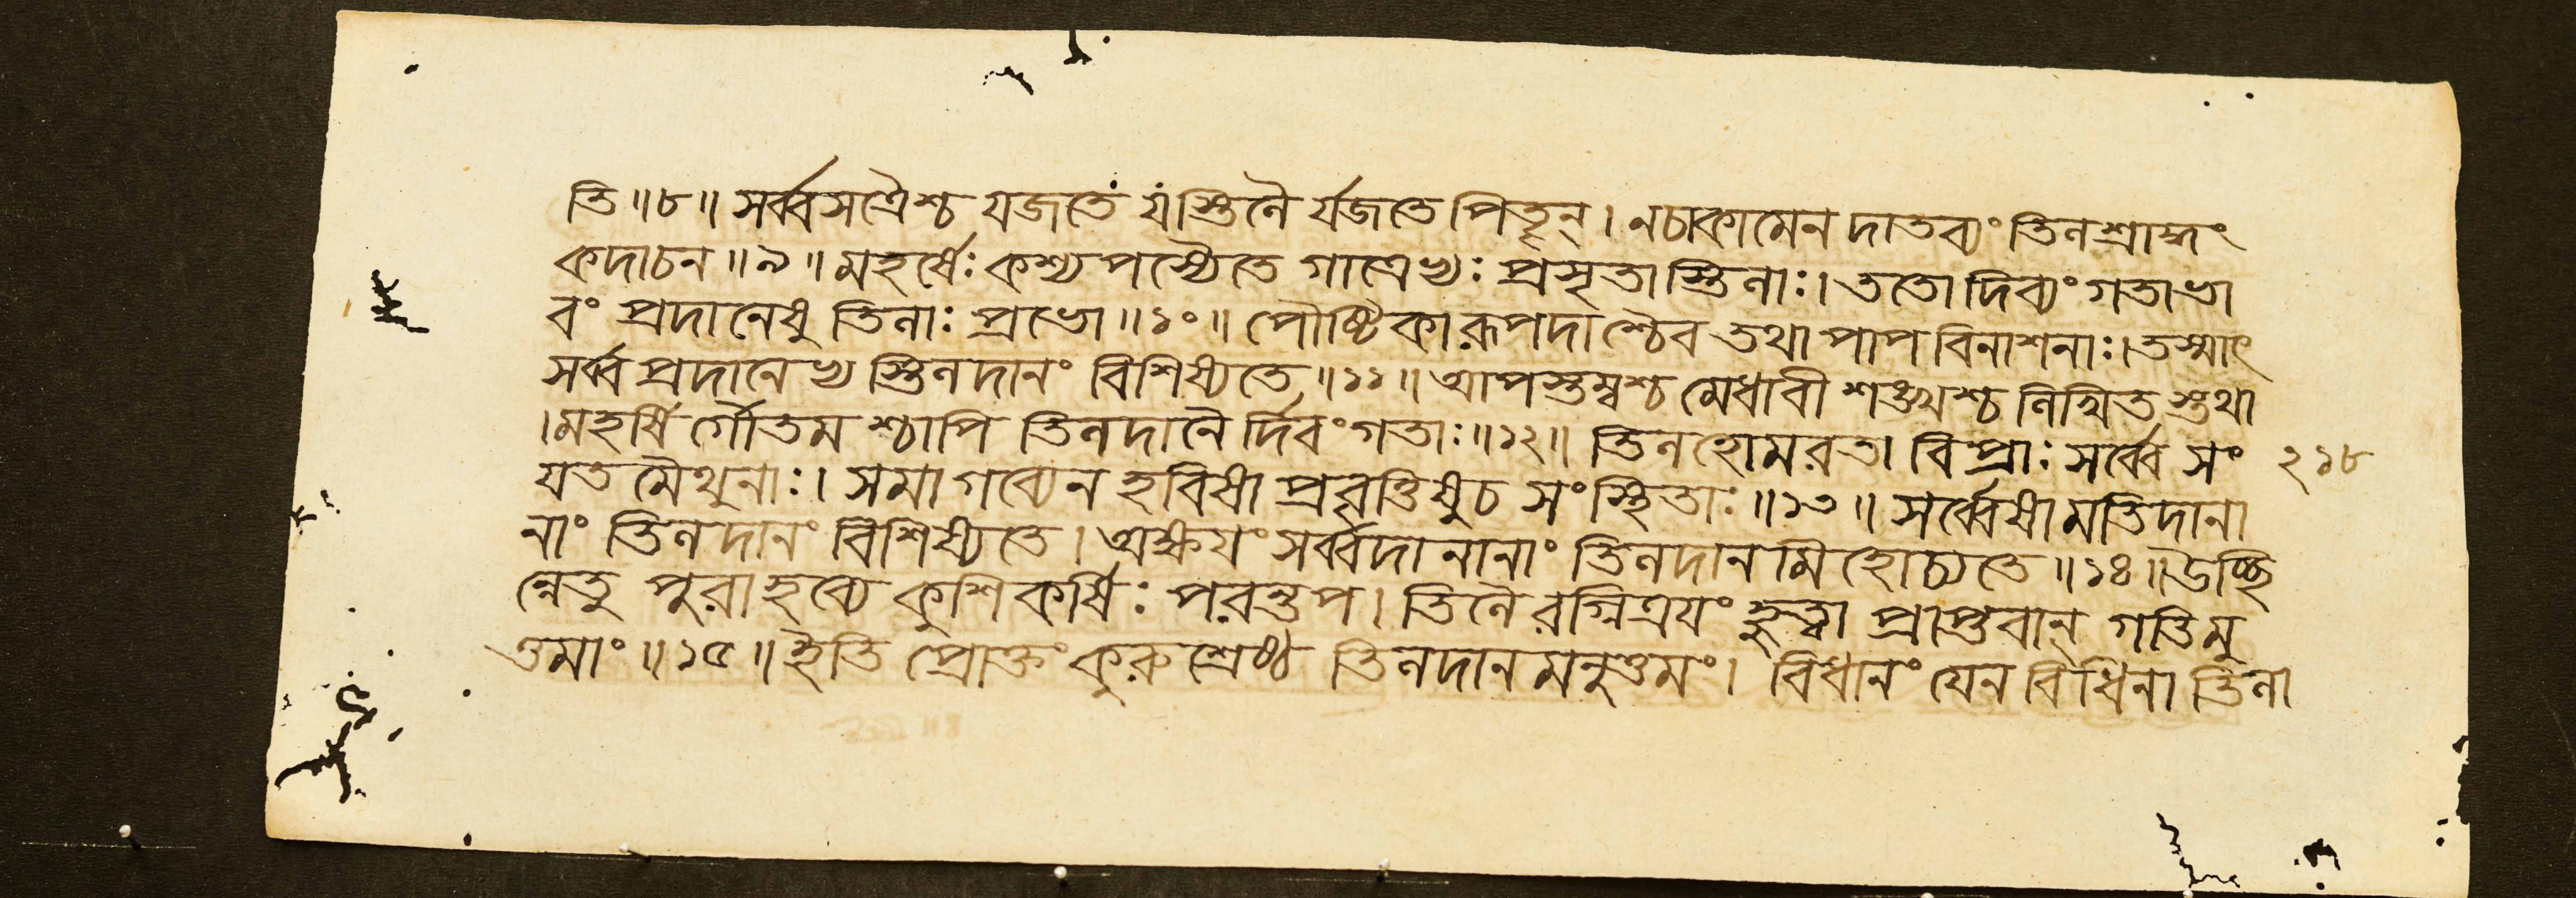 তি॥৮॥ সর্ব্বসত্রৈশ্চ যজতে যস্তিলৈর্যজতে পিতৄন্। নচাকামেন দাতব্যং তিলশ্রাদ্ধং
কদাচন॥৯॥ মহর্ষেঃ কশ্যপস্যৈতে গাত্রেভ্যঃ প্রসৃতাস্তিলাঃ। ততো দিব্যং গতাভা
বং প্রদানেষু তিলাঃ প্রভো॥১০॥ পৌষ্টিকারূপদাশ্চৈব তথা পাপবিনাশনাঃ। তস্মাৎ
সর্ব্বপ্রদানেভ্যস্তিলদানং বিশিষ্যতে॥১১॥ আপস্তম্বশ্চ মেধাবী শঙ্খশ্চ লিখিতস্তথা
। মহর্ষির্গৌতমশ্চাপি তিলদানৈর্দিবংগতাঃ॥১২॥ তিলহোমরতা বিপ্রাঃ সর্ব্বে সং ২১৮
যতমৈথুনাঃ। সমাগব্যেন হবিষা প্রবৃত্তিষুচ সংস্থিতাঃ॥১৩॥ সর্ব্বেষামতিদানা
নাং তিলদানং বিশিষ্যতে। অক্ষয়ং সর্ব্বদানানাং তিলদানমিহোচ্যতে॥১৪॥ উচ্ছি
ন্নেতু পুরাহব্যে কুশিকর্ষিঃ পরন্তপ। তিলৈরগ্নিত্রয়ং হুত্বা প্রাপ্তবান্ গতিমু
ত্তমাং॥১৫॥ ইতি প্রোক্তং কুরুশ্রেষ্ঠ তিলদানমনুত্তমং। বিধানং যেন বিধিনা তিলা